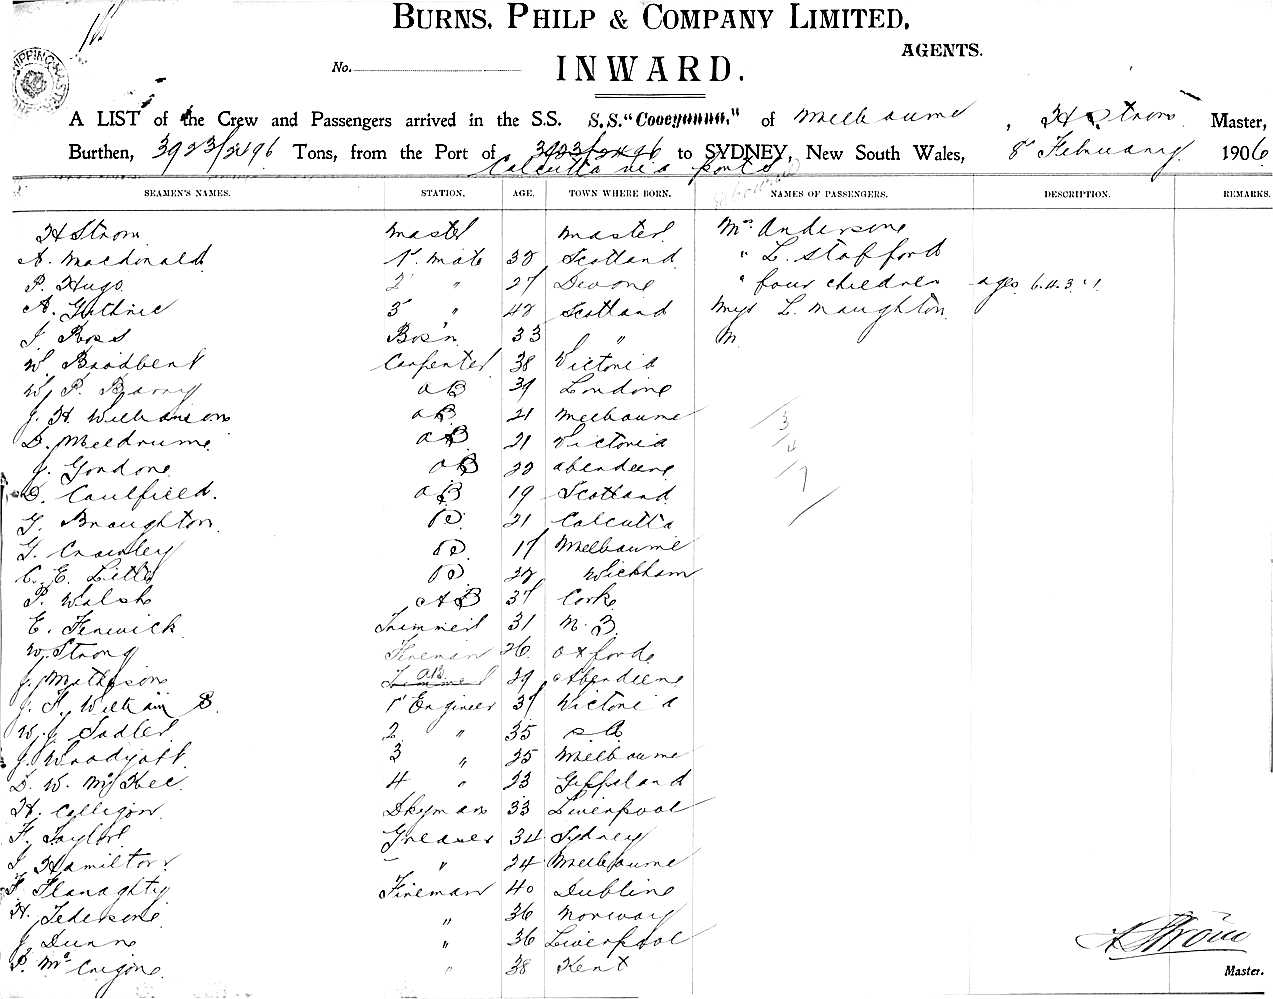 BURNS, PHILP & COMPANY LIMITED,
AGENTS.
No.
INWARD.
A LIST of the Crew and Passengers arrived in the S.S. S.S. "Cooeyanna." of Melbourne, H Strom Master,
Burthen, 3923/2496 Tons, from the Port of 3923/2496 to SYDNEY, New South Wales, 8 February 1906
Calcutta via ports
SEAMEN'S NAMES. STATION. AGE. TOWN WHERE BORN. NAMES OF PASSENGERS. DESCRIPTION. REMARKS.
H Strom Master Master Mrs Andersone
A. Macdonald 1st Mate 38 Scotland " L. Stafford
P. Hugo 2 " 27 Devone " four children ages 6.4.3.1
A. Guthrie 3 " 42 Scotland Miss L. Maughton
J. Ross Bosn 33 " M
W. Broadbent Carpenter 38 Victoria
W. P. Barry AB 39 Londone
J. H. Williamson AB 21 Melbourne
D. Meldrume AB 21 Victoria
J. Gordone AB 22 Aberdeene
D. Caulfield. AB 19 Scotland
G. Braughton 21 Calcutta
G. Crowley 17 Melbourne
C. E. Little 22 Wickham
P. Walsh AB 37 Cork
E. Fenwick Trimmer 31 N. Z
W. Strong Fireman 26 Oxforde
J. Mathison Trimmer AB 29 Aberdeene
J. F. William S. 1st Engineer 37 Victoria
W. J. Sadler 2 " 35 S A
J. Woodyatt 3 " 25 Melbourne
D. W. McKee 4 " 23 Gippsland
H. Colligon Dkyman 33 Liverpool
F. Taylor Greaser 34 Sydney
J Hamilton " 24 Melbourne
F Flanaghty Fireman 40 Dubline
H. Pedersone " 36 Norway
J Dunn " 36 Liverpool
P. McCuigone " 38 Kent
H Strom
Master.